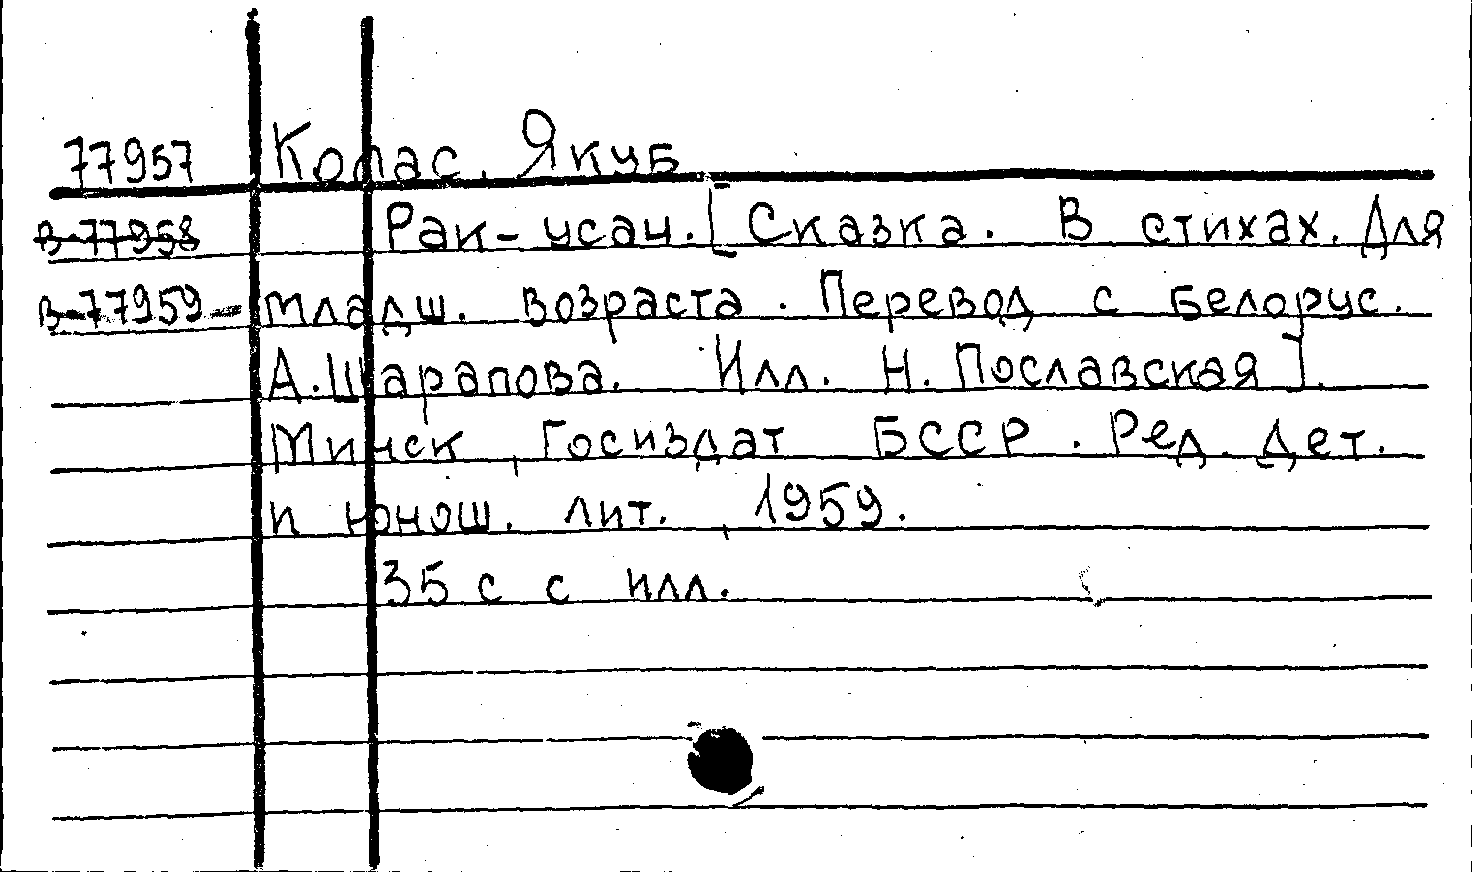 77957 Колас, Якуб
В-77958 Рак-усач. [Сказка. В стихах. Для
В-77959 младш. возраста. Перевод с белорус.
А. Шарапова. Илл. Н. Пославская].
Минск, Госиздат БССР. Ред. дет.
и юнош. лит., 1959.
35 с с илл.